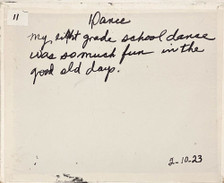 11
Dance
my eight grade school dance
was so much fun in the
good old days.
2-10-23